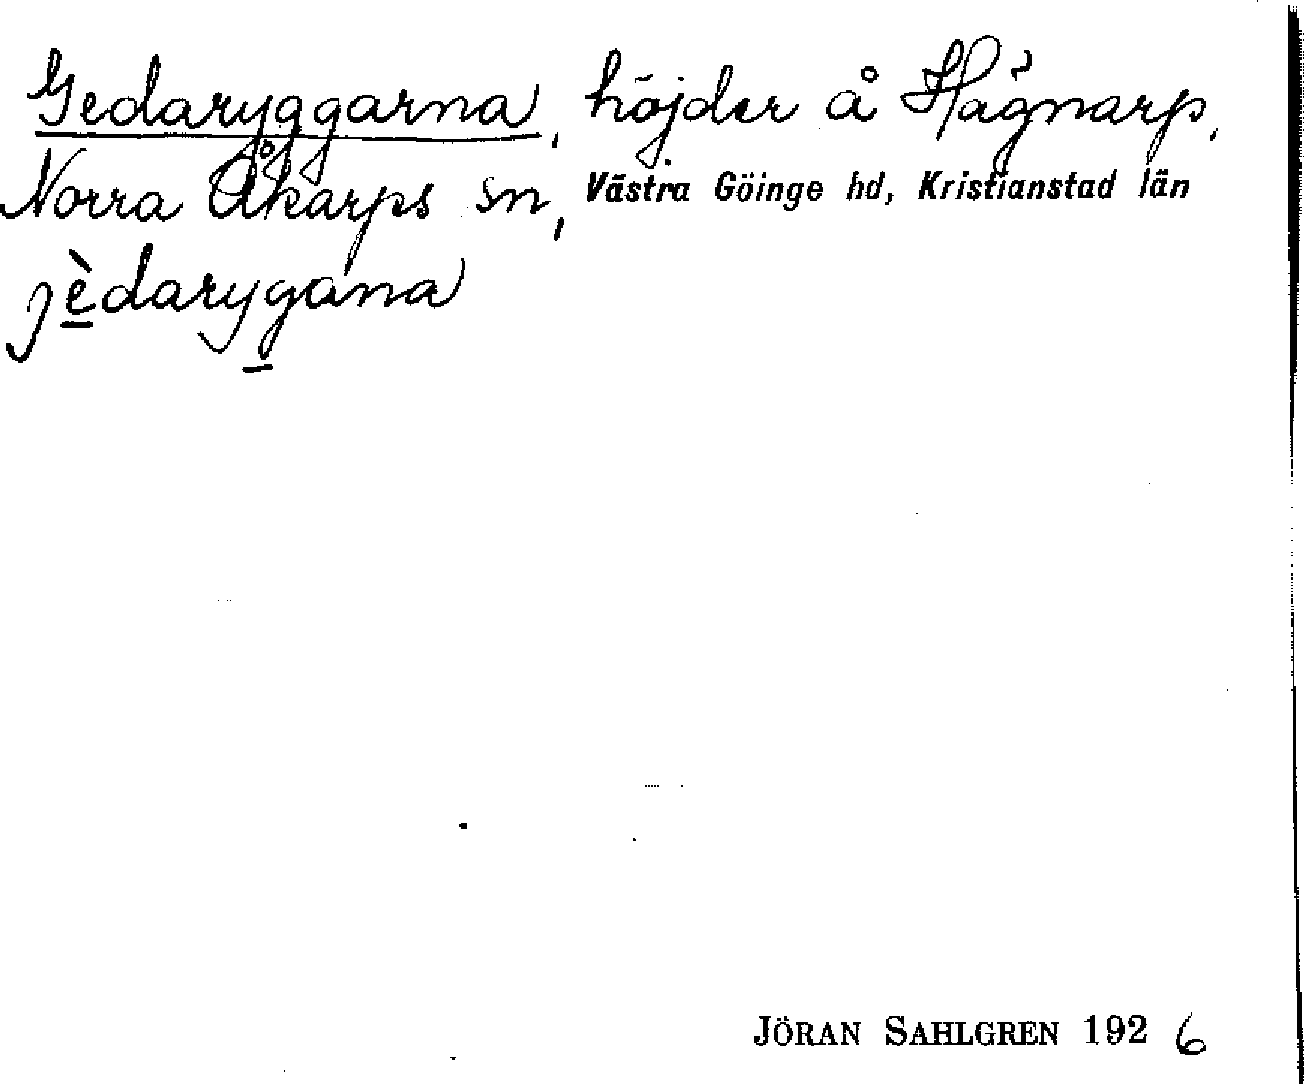 Gedaryggarna, höjder å Hägnarp,
Norra Åkarps sn, Västra Göinge hd, Kristianstad län
jèdarygana
JÖRAN SAHLGREN 1926